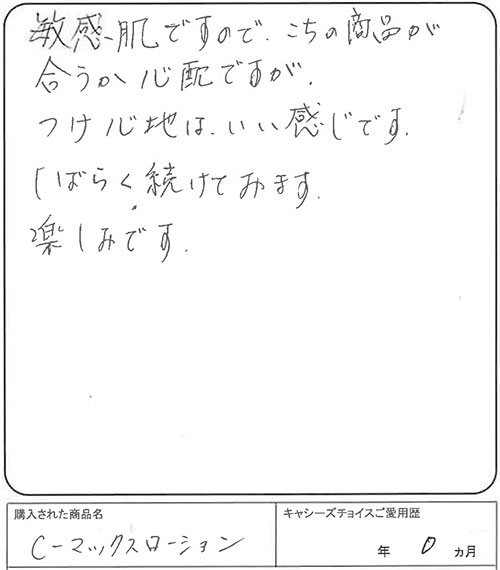 敏感肌ですので、こちの商品が
合うか心配ですが、
つけ心地は、いい感じです。
しばらく続けてみます。
楽しみです。
購入された商品名
C-マックスローション
キャシーズチョイスご愛用歴
年 0 カ月